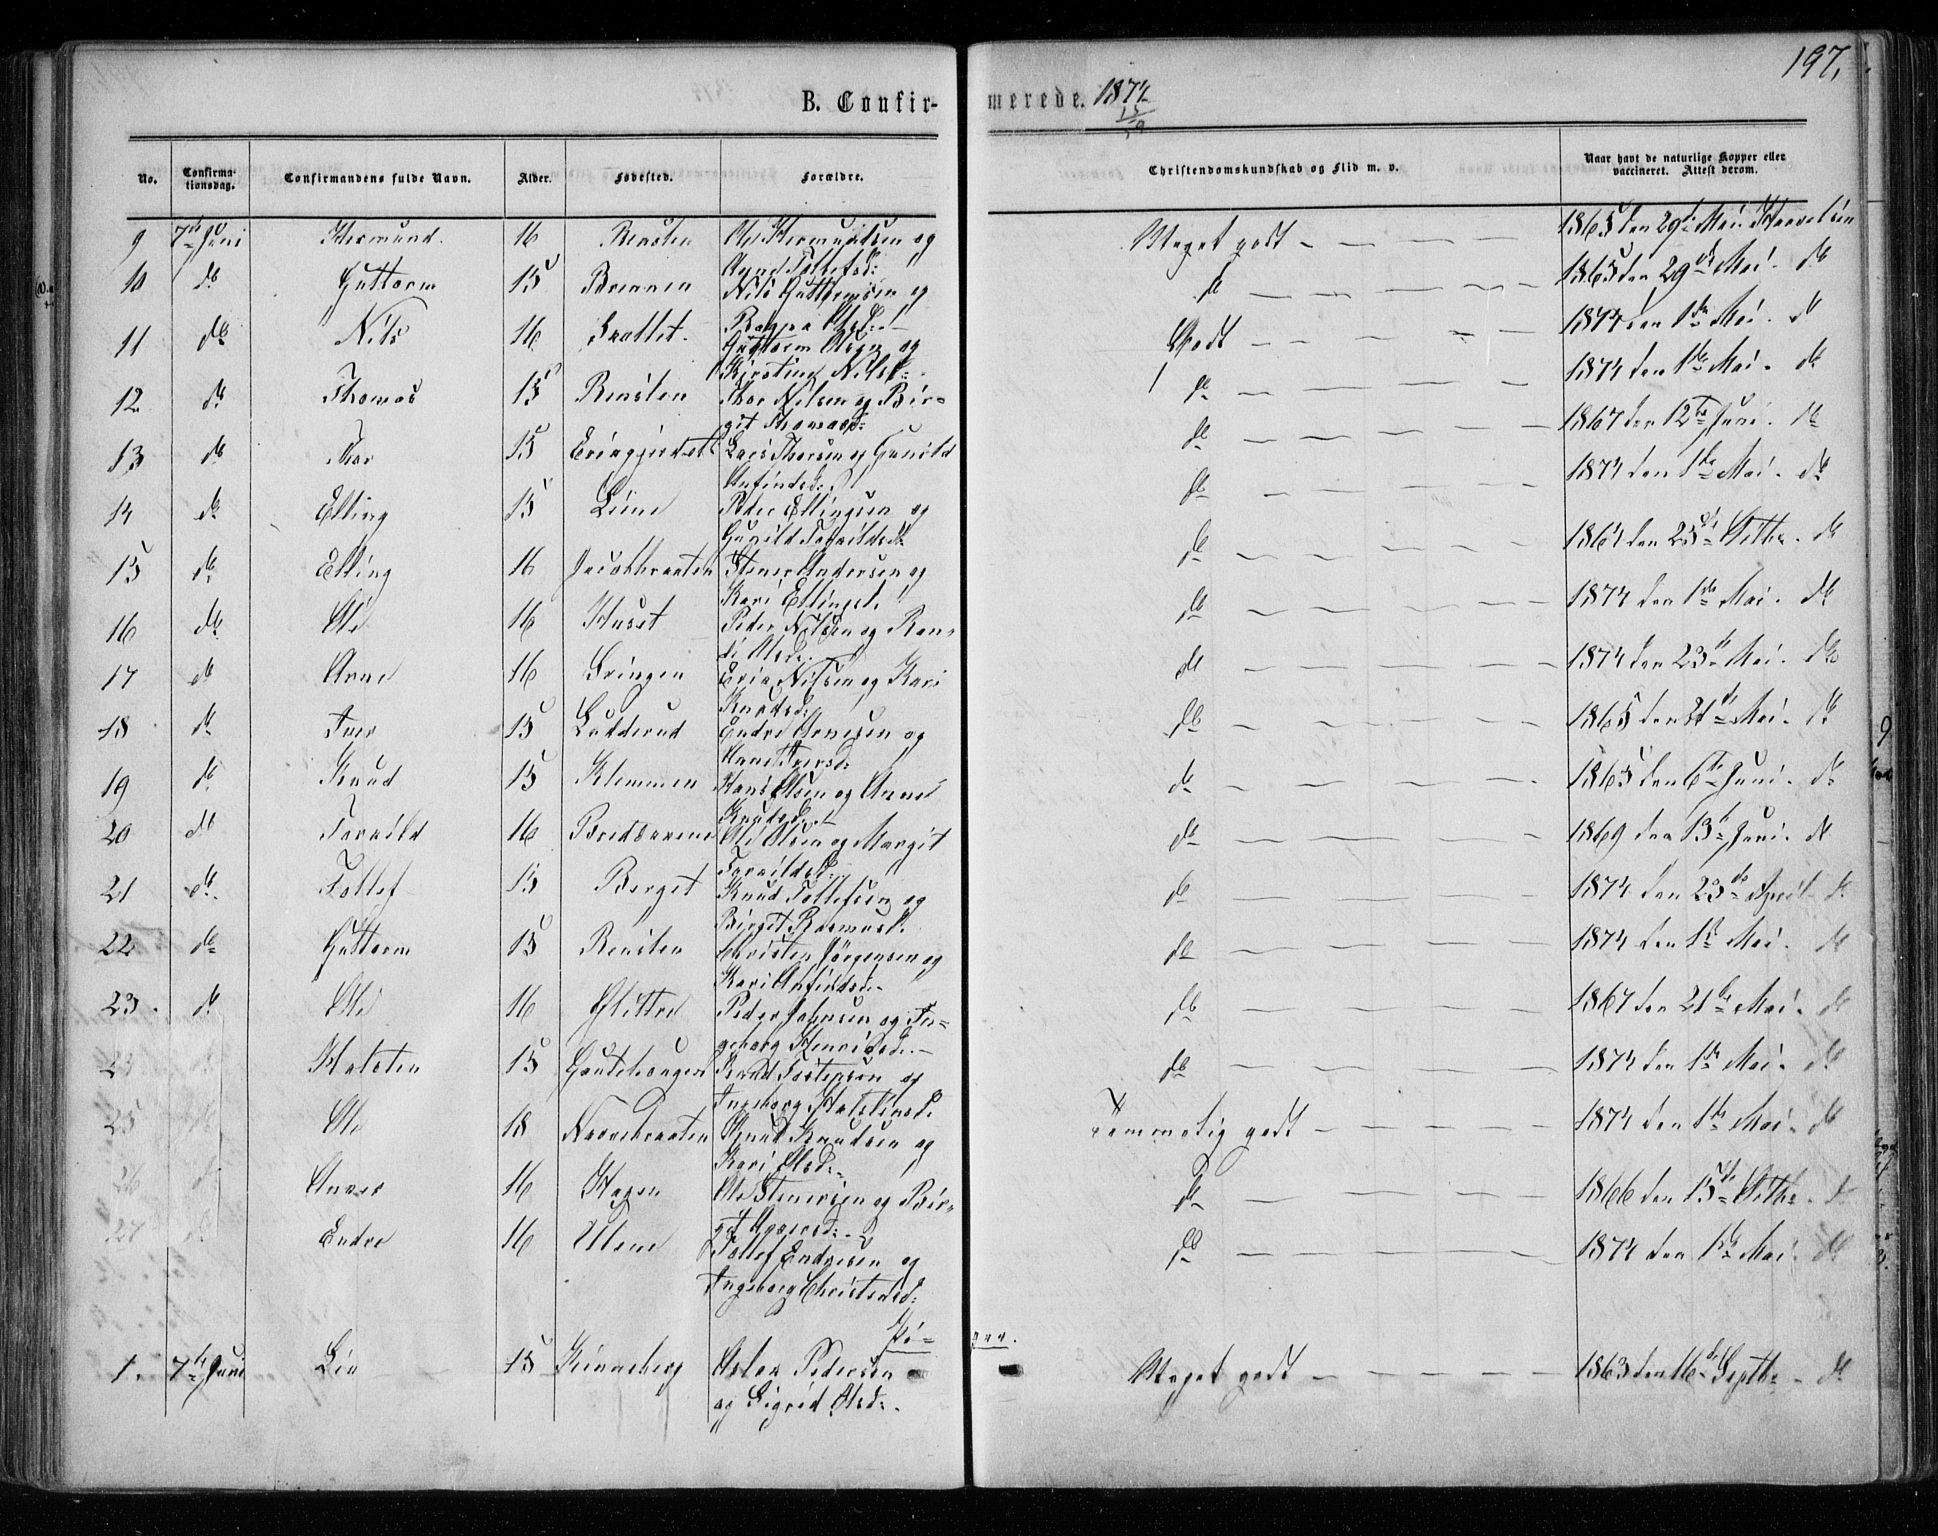 197.
B. Confirmerede. 1874
No. Confirmationsdag. Confirmandens fulde Navn. Alder. Fødested. Forældre. Christendomskundskab og Flid m. v. Naar havt de naturlige Kopper eller vaccineret. Attest derom.
9 7de Juni Hermund. 16 Ole Hermundsen og Meget godt 1865 den 29de Mai.
Tollefsd:
10 do Guttorm 15 Brennen Nils Guttormsen og do 1865 den 29de Mai. do
Olsd:
11 do Nils 16 Guttorm Olsen og Godt 1874 den 1ste Mai. do
Kirstine Nilsd:
12 do Thomas 15 Rensten Thor Nilsen og Bir- do 1874 den 1ste Mai. do
git Thomasd:
13 do Thor 15 Lars Thorsen og Gunild do 1867 den 12te Juni. do
Anfindsd:
14 do Elling 15 Liene Peder Ellingsen og do 1874 den 1ste Mai. do
Gunild
15 do Elling 16 Jacobbraaten Stener Andersen og do 1864 den 23de Octbr. do
Kari Ellingsd.
16 do Ole 16 Huset Peder Nilsen og Ran- do 1874 den 1ste Mai. do
di Olsd:
17 do Arne 16 Svingen Nilsen og Kari do 1874 den 23de Mai. do
Knudsd:
18 do Iver 15 Lukkerud Endre Arnesen og do 1865 den 21de Mai. do
Iversd:
19 do Knud 15 Klemmen Hans Olsen og Anne do 1865 den 6te Juni. do
Knudsd.
20 do Toreild 16 Bredvarene Ole Olsen og Margit do 1869 den 13de Juni. do
Toreildsd.
21 do Tollef 15 Berget Knud Tollefsen og do 1874 den 23de April do
Birgit Rasmusd.
22 do Guttorm 15 Rensten Christen Jørgensen og do 1874 den 1ste Mai. do
Kari Anfindsd.
23. do Ole 16 Glittre Peder Johnsen og In- do 1867 den 21de Mai. do
geborg
Halsten 15 Gautehaugen Knud Torstensen og do 1874 den 1ste Mai. do
Ingeborg Halstensd.
25 Ole 18 Knud Knudsen og Temmelig godt 1874 den 1ste Mai. do
Kari Olsd.
26 do 16 Hagen Ole Stenersen og Bir- do 1866 den 15de Octbr. do
git
27 do Endre 16 Ulene Tollef Endresen og do 1874 den 1ste Mai. do
Ingeborg Christensd:
Pi-
ger.
1. 7de Juni Liv 15 Kinneberg Aslak Pedersen Meget godt 1863 den 16de Septbr. do
og Sigrid Olsd.